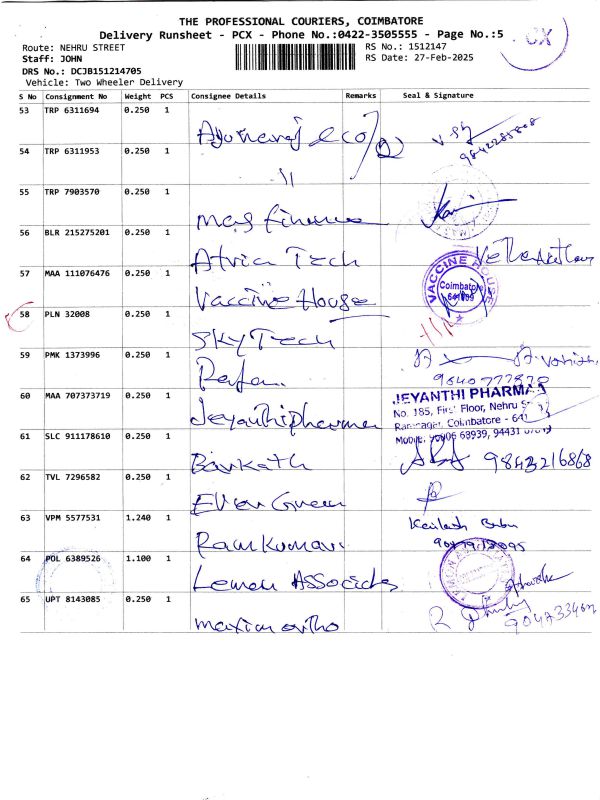 THE PROFESSIONAL COURIERS, COIMBATORE
Delivery Runsheet - PCX - Phone No.:0422-3505555 - Page No.:5
CX
Route: NEHRU STREET
RS No.: 1512147
Staff: JOHN
RS Date: 27-Feb-2025
DRS No.: DCJB151214705
Vehicle: Two Wheeler Delivery
S No Consignment No Weight PCS Consignee Details Remarks Seal & Signature
53 TRP 6311694 0.250 1
54 TRP 6311953 0.250 1 "
55 TRP 7903570 0.250 1 mas finance
56 BLR 215275201 0.250 1 Atvia Tech
57 MAA 111076476 0.250 1 Vaccine House
VACCINE HOUSE
Coimbatore
58 PLN 32008 0.250 1 SKY Tech
59 PMK 1373996 0.250 1
60 MAA 707373719 0.250 1 Jeyanthi pharma
JEYANTHI PHARMA
No. 185, First Floor, Nehru
Ramnagar, Coimbatore - 641
61 SLC 911178610 0.250 1
9843216868
62 TVL 7296582 0.250 1
63 VPM 5577531 1.240 1 Ramkumar
Kailash Babu
64 POL 6389526 1.100 1 Lemen Associates
65 UPT 8143085 0.250 1 maxim ortho